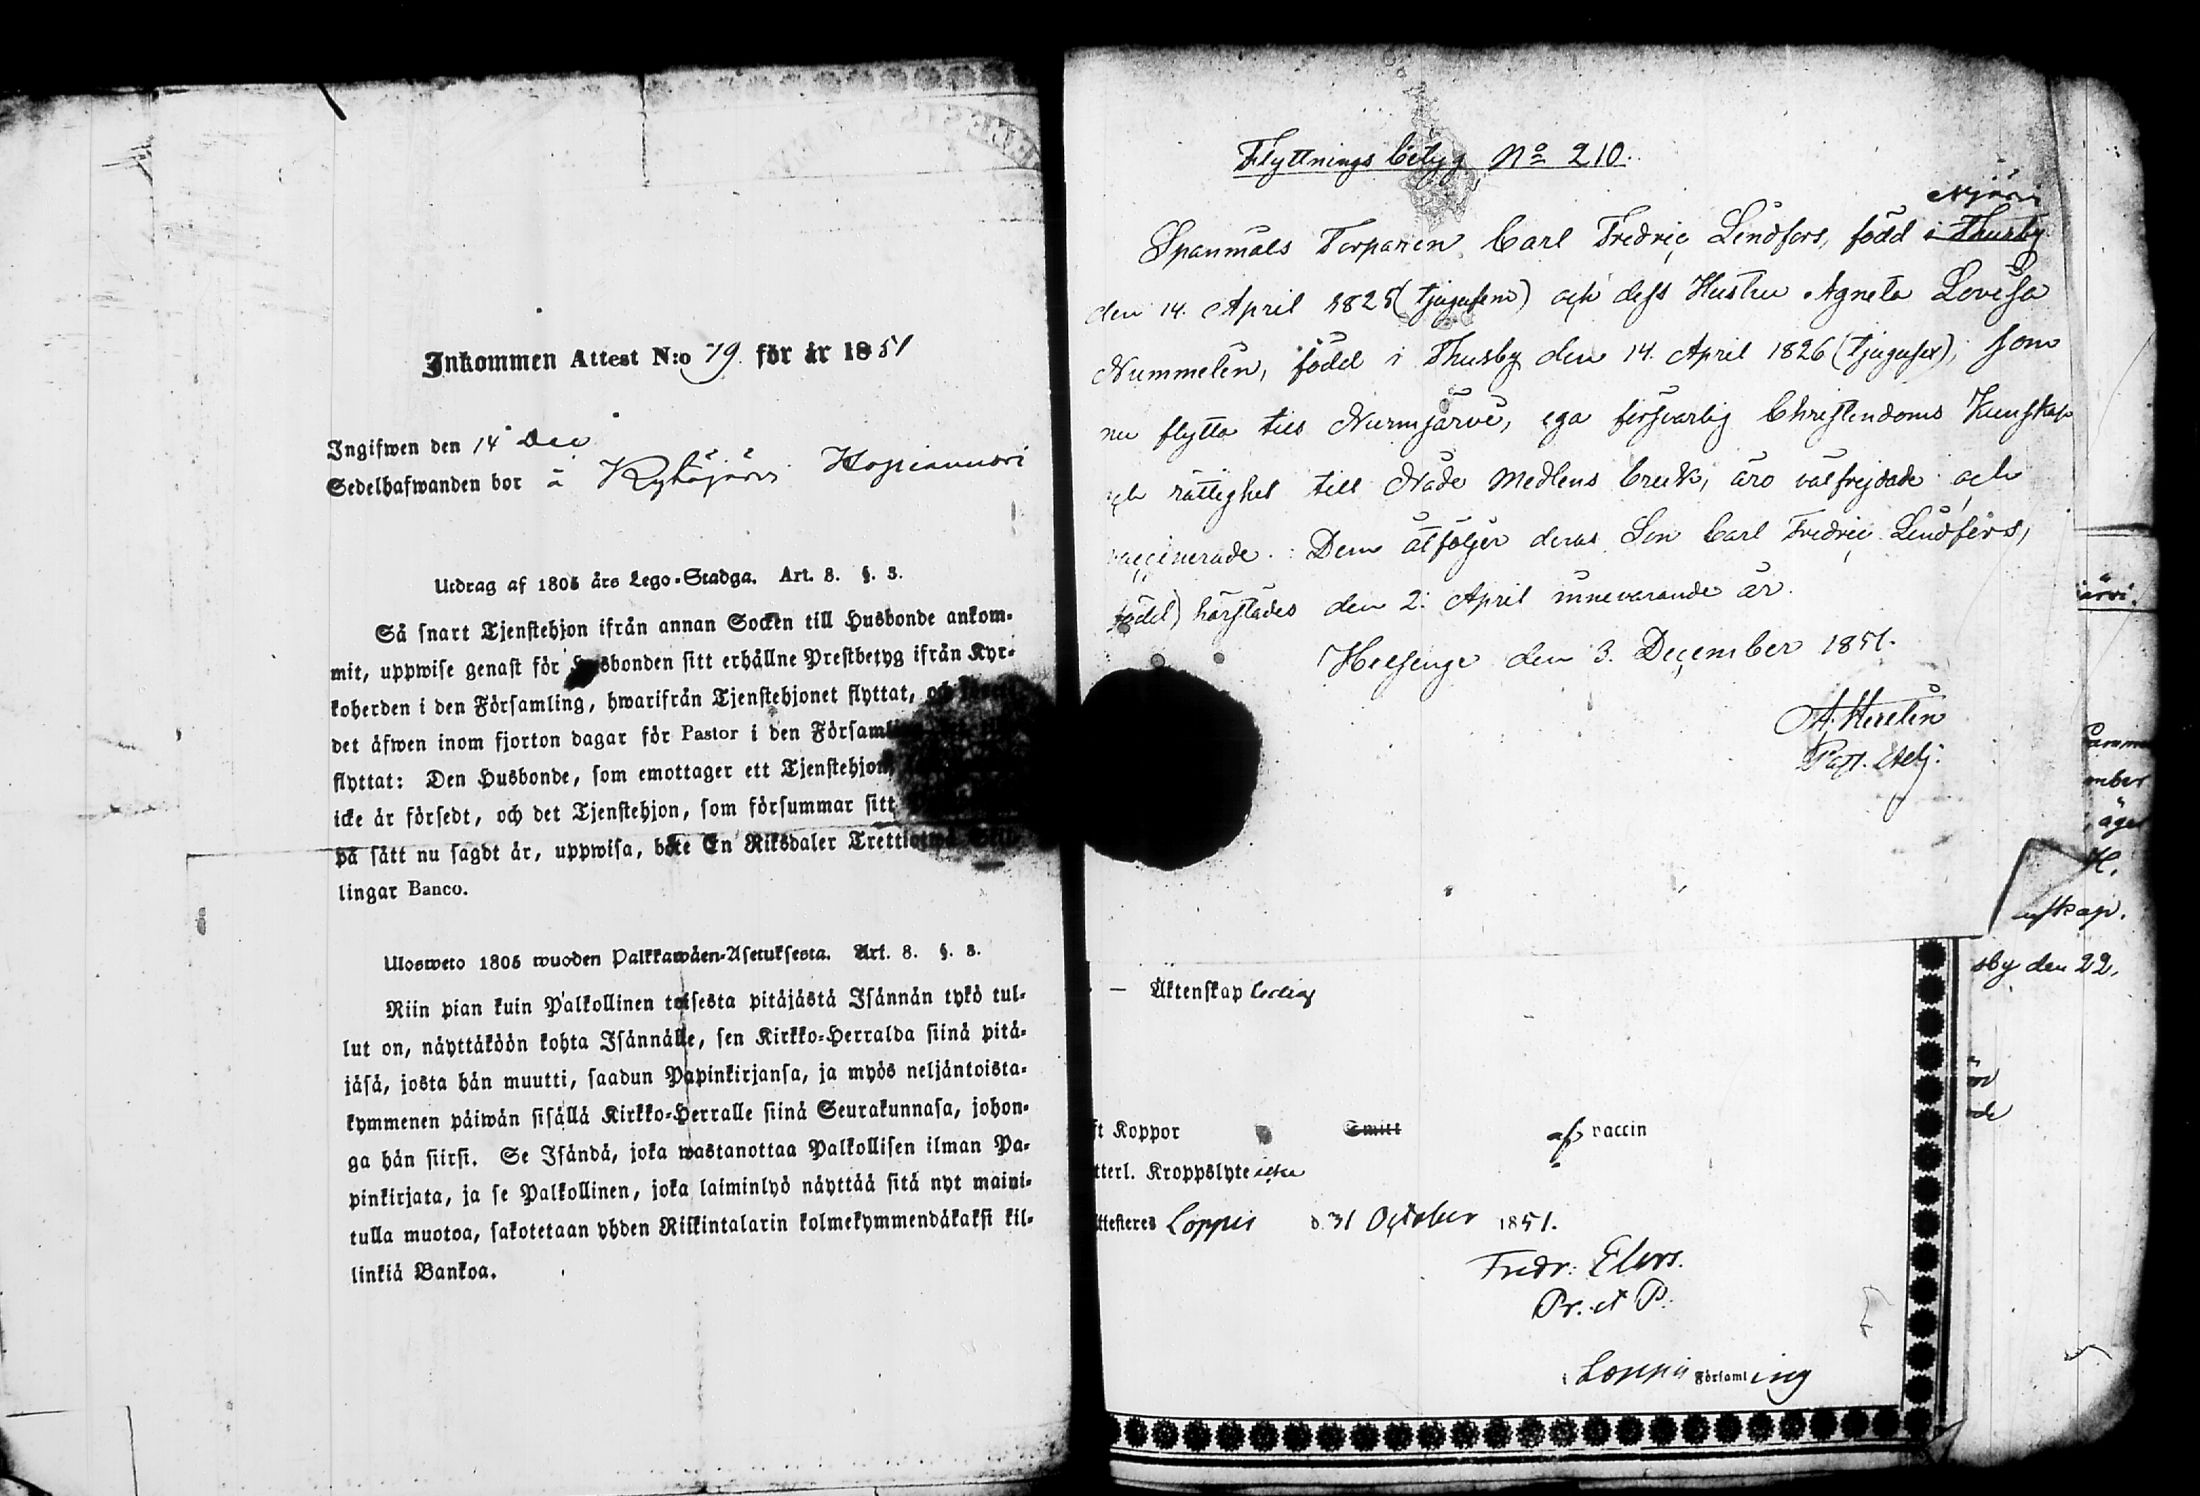 Inkommen Attest N:o 79. för år 1851
Ingifwen den 14 Dec
Sedelhafwanden bor å Kytäjärvi
Utdrag af 1805 års Lego-Stadga. Art. 8. §. 3.
Så snart Tjenstehjon ifrån annan Socken till Husbonde ankom-
mit, uppwise genast för Husbonden sitt erhållne Prestbetyg ifrån Kyr-
koherden i den Församling, hwarifrån Tjenstehjonet flyttat, och
det äfwen inom fjorton dagar för Pastor i den
flyttat: Den Husbonde, som emottager ett Tjenstehjon,
icke är försedt, och det Tjenstehjon, som försummar sitt
på sätt nu sagdt är, uppwisa, böte En Riksdaler Trettiotwå Skil-
lingar Banco.
Ulosweto 1805 wuoden Palkkawäen-Asetuksesta. Art. 8. §. 3.
Niin pian kuin Palkollinen toisesta pitäjästä Isännän tykö tul-
lut on, näyttäköön kohta Isännälle, sen Kirkko-Herralda siinä pitä-
jäsä, josta hän muutti, saadun Papinkirjansa, ja myös neljäntoista-
kymmenen päiwän sisällä Kirkko-Herralle siinä Seurakunnasa, johon-
ga hän siirsi. Se Isändä, joka wastanottaa Palkollisen ilman Pa-
pinkirjata, ja se Palkollinen, joka laiminlyö näyttää sitä nyt maini-
tulla muotoa, sakotetaan yhden Riikintalarin kolmekymmendäkaksi kil-
linkiä Bankoa.
Flyttnings betyg, No 210.
Njärvi
Spanmåls Torparen Carl Fredric Lindfors, född i Thusby
den 14. April 1825 (tjugufem) och dess Hustru Agneta Lovisa
Nummelin, född i Thusby den 14. April 1826 (tjugusex), som
nu flytta till Nurmijärvi, ega försvarlig Christendoms Kunskap
och rättighet till Nåde Medlens bruk, äro välfrejdade och
vaccinerade. Dem åtföljer deras Son Carl Fredric Lindfors,
född härstädes den 2. April innevarande år.
Helsinge den 3. December 1851.
Past. Adj.
— Äktenskap ledig
ft Koppor Smitt af vaccin
tterl. Kroppslyte icke
ttesteres Loppis d. 31 October 1851.
Fredr: Elers.
Pr. et P.
i Loppis Församling
ärvi.
mber
äger
H.
sby den 22.